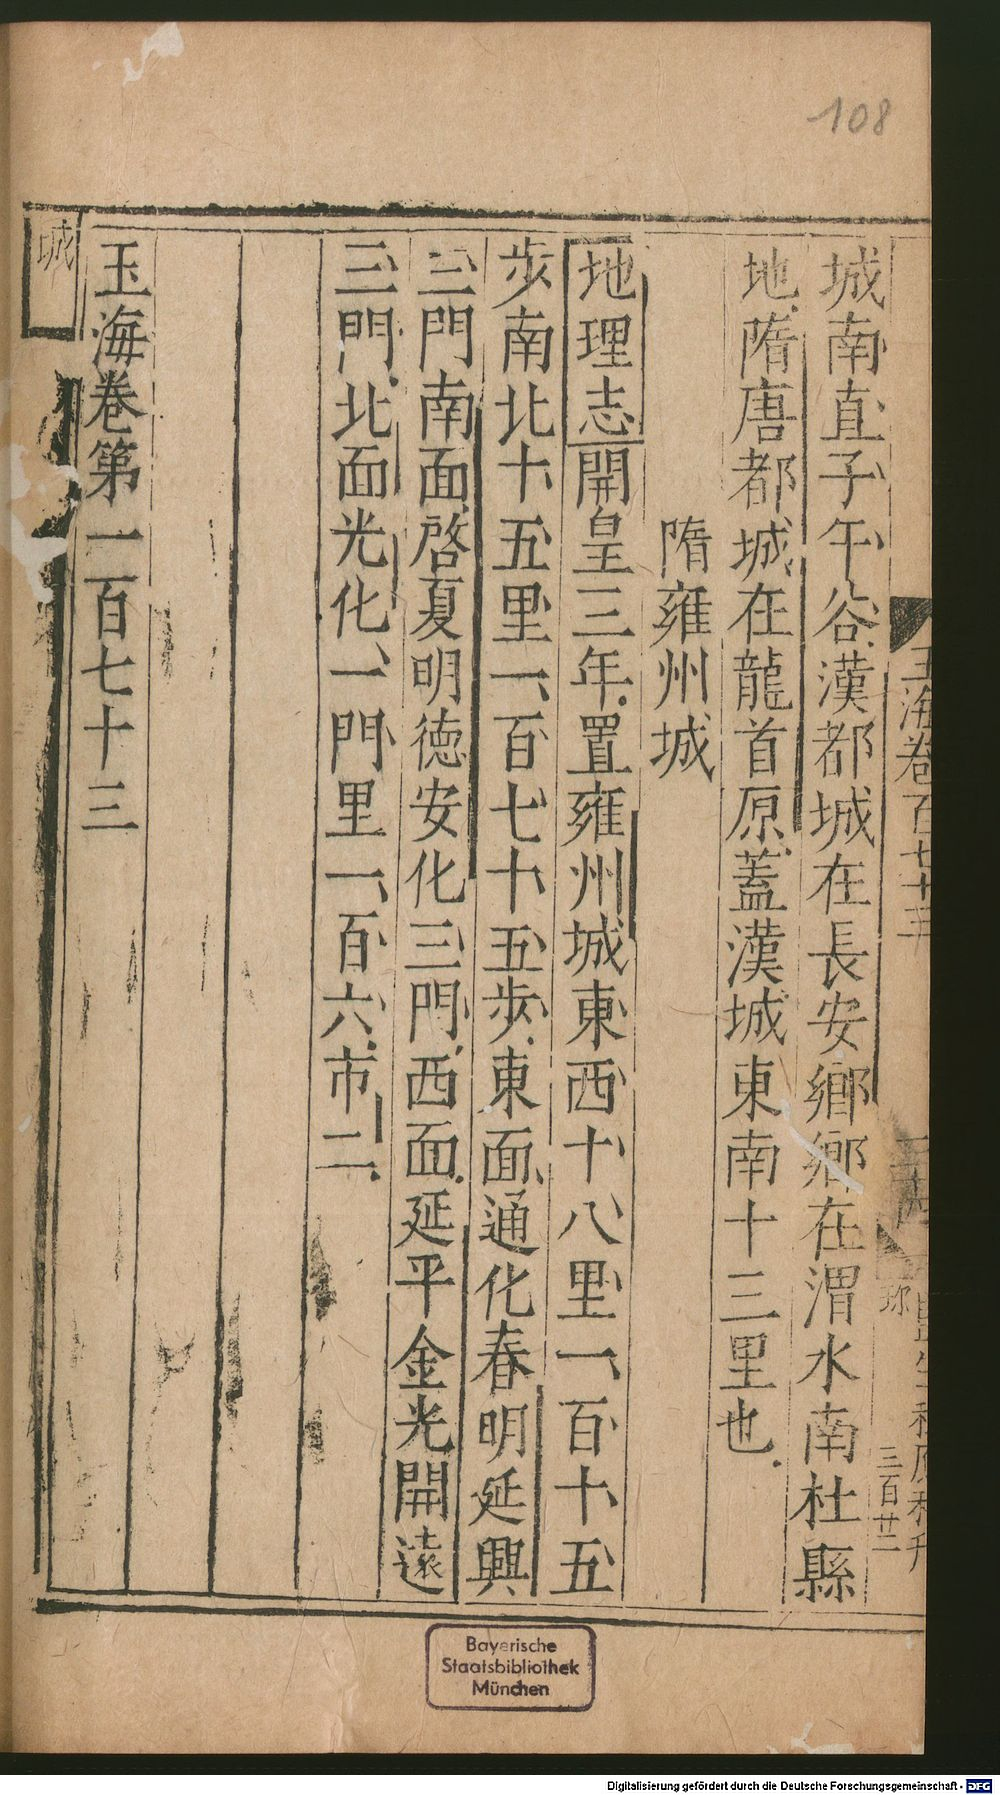 108
玉海卷百七十三
三百廿二
城南直子午谷漢都城在長安鄉鄉在渭水南杜縣
地隋唐都城在龍首原蓋漢城東南十三里也
隋雍州城
地理志開皇三年置雍州城東西十八里一百十五
步南北十五里一百七十五步東面通化春明延興
三門南面啓夏明德安化三門西面延平金光開遠
三門北面光化一門里一百六市二
玉海卷第一百七十三
城
Bayerische
Staatsbibliothek
München
Digitalisierung gefördert durch die Deutsche Forschungsgemeinschaft - DFG